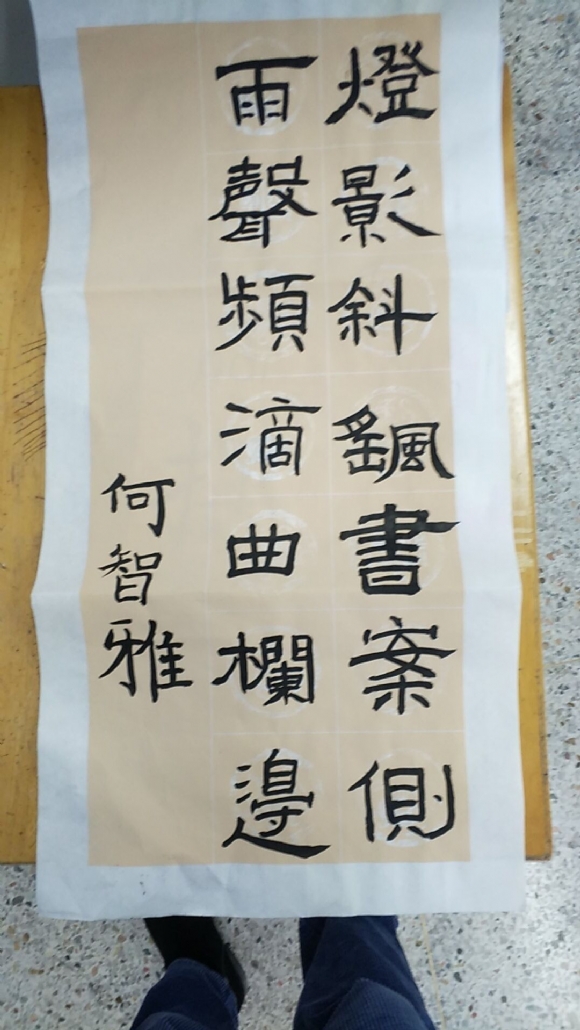 燈影斜飄書案側
雨聲頻滴曲欄邊
何智雅